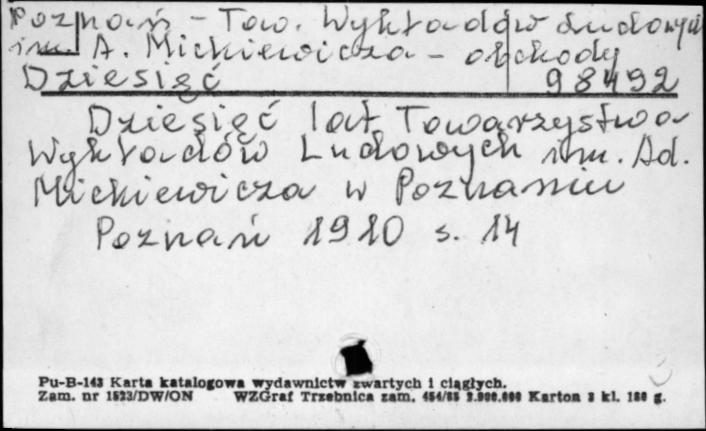 Poznań - Tow. Wykładów Ludowych
im. A. Mickiewicza - obchody
Dziesięć 98492
Dziesięć lat Towarzystwa
Wykładów Ludowych im. Ad.
Mickiewicza w Poznaniu
Poznań 1910 s. 14
Pu-B-143 Karta katalogowa wydawnictw zwartych i ciągłych.
Zam. nr 1523/DW/ON WZGraf Trzebnica zam. 454/85 2.000.000 Karton 3 kl. 180 g.